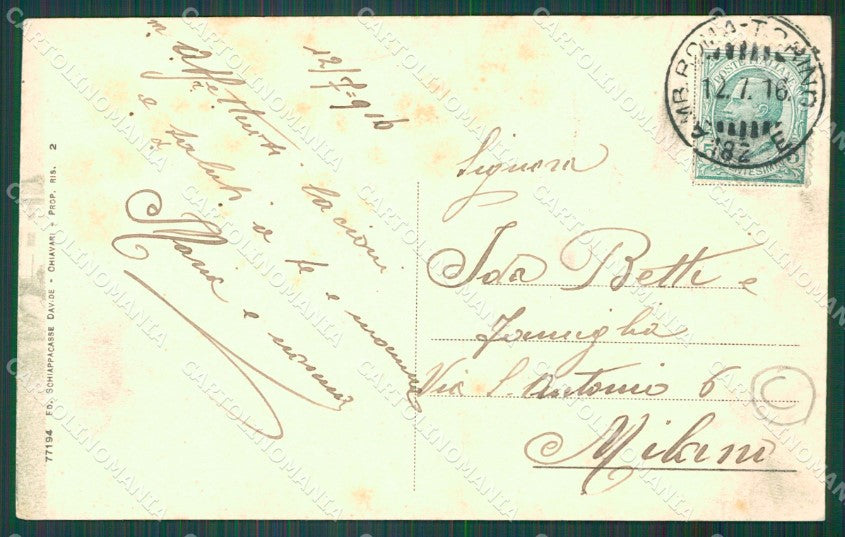 12/7=916
Affettuosi bacioni
e saluti a te e mamma
Maria e
Signora
Ida Betti e
Famiglia
Via S. Antonio 6
Milano
AMB. ROMA-TORINO
12.7.16.
182 E
POSTE ITALIANE
77194 ED. SCHIAPPACASSE DAVIDE - CHIAVARI - PROP. RIS. 2
CARTOLINOMANIA